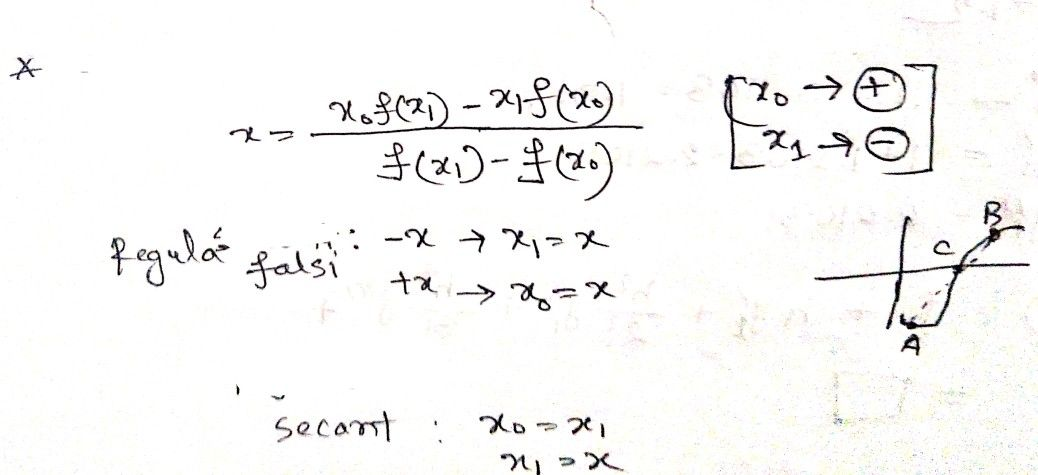 *
x = x₀f(x₁) - x₁f(x₀) / f(x₁) - f(x₀) [x₀ → ⊕
x₁ → ⊖]
Regula falsi : -x → x₁ = x
+x → x₀ = x
B
C
A
secant : x₀ = x₁
x₁ = x